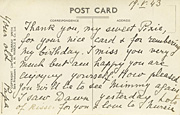 19.V.43
POST CARD
CORRESPONDENCE
ADDRESS
Thank you, my sweet
for your nice card & for remembering
my birthday. I miss you very
much but am happy you are
enjoying yourself. How pleased
you'll be to see Mummy again
I saw yesterday, lots
of kisses for you & love to